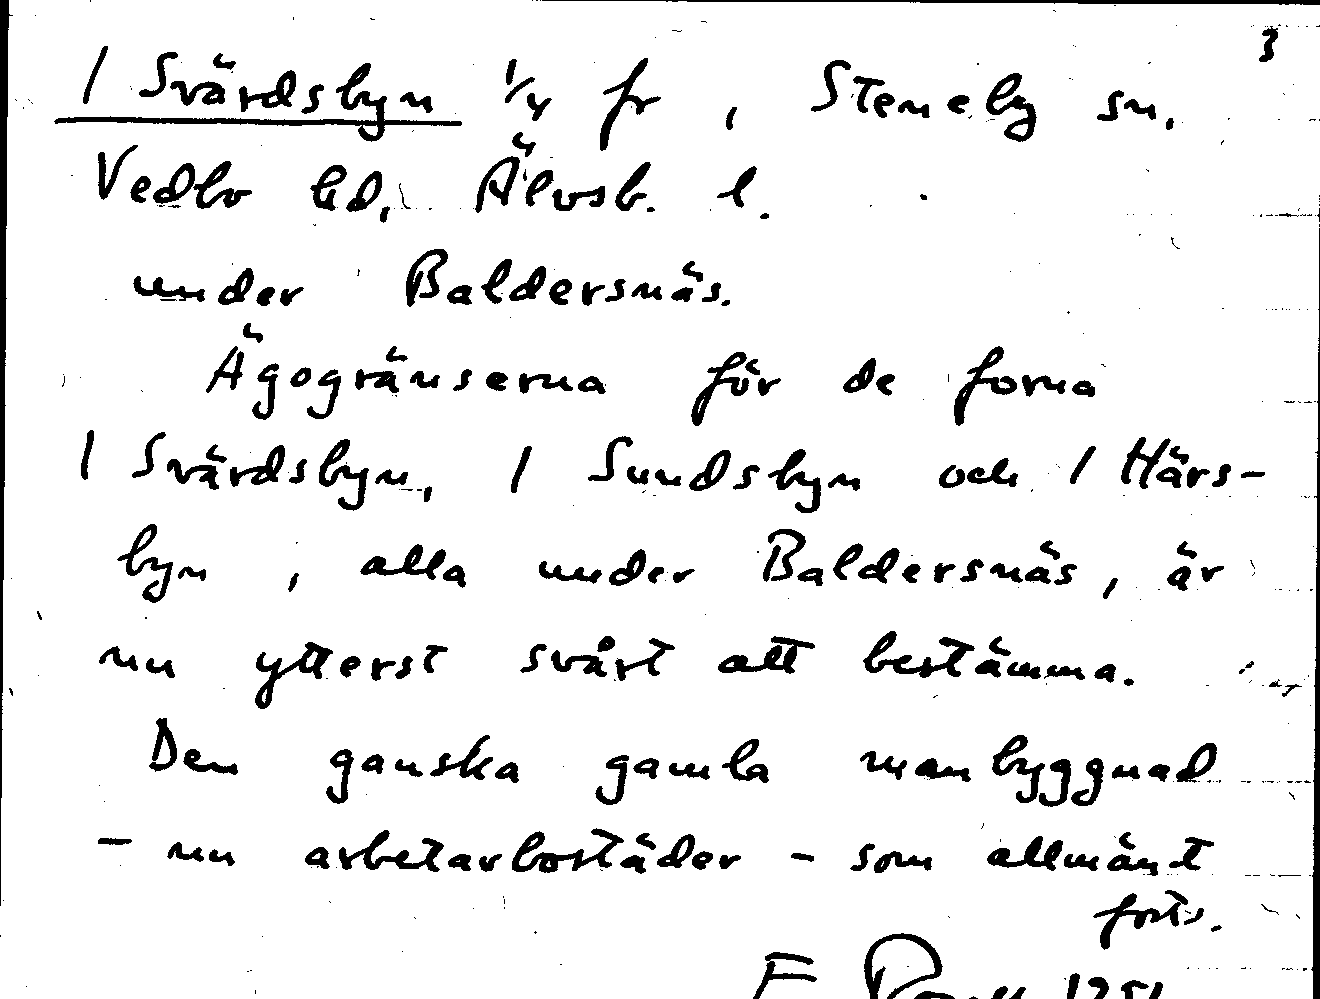 3
1 Svärdsbyn 1/4 fr, Steneby sn,
Vedbo hd, Älvsb. l.
under Baldersnäs.
Ägogränserna för de forna
1 Svärdsbyn, 1 Sundsbyn och 1 Härs-
byn, alla under Baldersnäs, är
nu ytterst svårt att bestämma.
Den ganska gamla manbyggnad
- nu arbetarbostäder - som allmänt
forts.